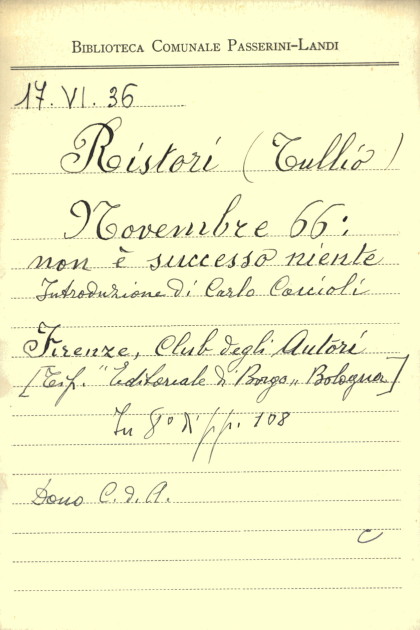 BIBLIOTECA COMUNALE PASSERINI-LANDI
17. VI. 36
Ristori (Tullio)
Novembre 66:
non è successo niente
Introduzione di Carlo Coccioli
Firenze, Club degli Autori
[Tip. "Editoriale di Borgo" Bologna]
In 8° di pp. 108
Dono C. d. A.
C